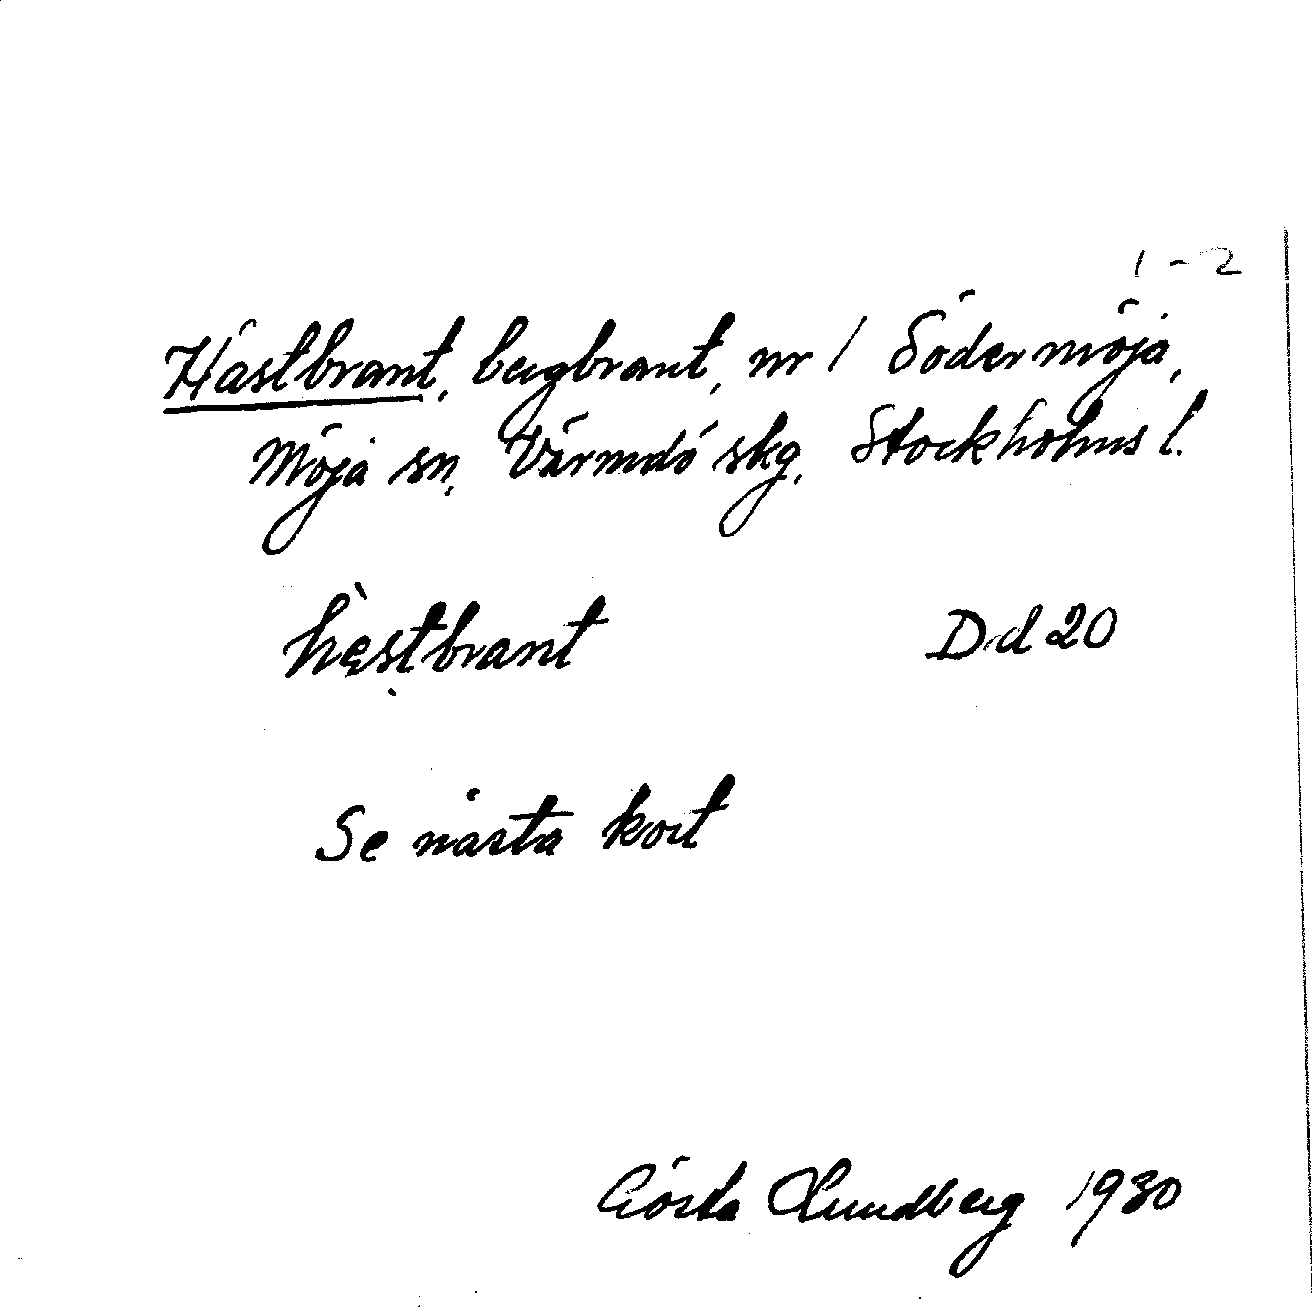 1 - 2
Hästbrant, bergbrant, nr 1 Södermöja,
Möja sn, Värmdö skg, Stockholms l.
hèstbrant Dd 20
Se nästa kort
Gösta Lundberg 1930